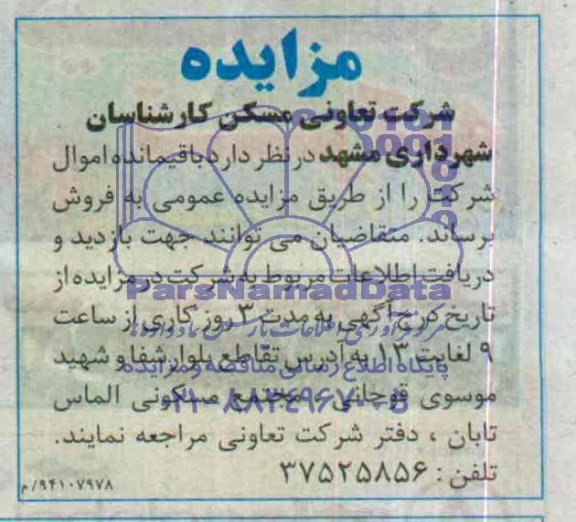 مزایده
شرکت تعاونی مسکن کارشناسان
شهرداری مشهد در نظر دارد باقیمانده اموال
شرکت را از طریق مزایده عمومی به فروش
برساند. متقاضیان می توانند جهت بازدید و
دریافت اطلاعات مربوط به شرکت در مزایده از
تاریخ درج آگهی به مدت ۳ روز کاری از ساعت
۹ لغایت ۱۳ به آدرس تقاطع بلوار شفا و شهید
موسوی قوچانی ، مجتمع مسکونی الماس
تابان ، دفتر شرکت تعاونی مراجعه نمایند.
تلفن : ۳۷۵۲۵۸۵۶
۹۴۱۰۷۹۷۸/م
ParsNamadData
پایگاه اطلاع رسانی مناقصه و مزایده
۰۲۱-۸۸۳۴۹۶۷۰-۵